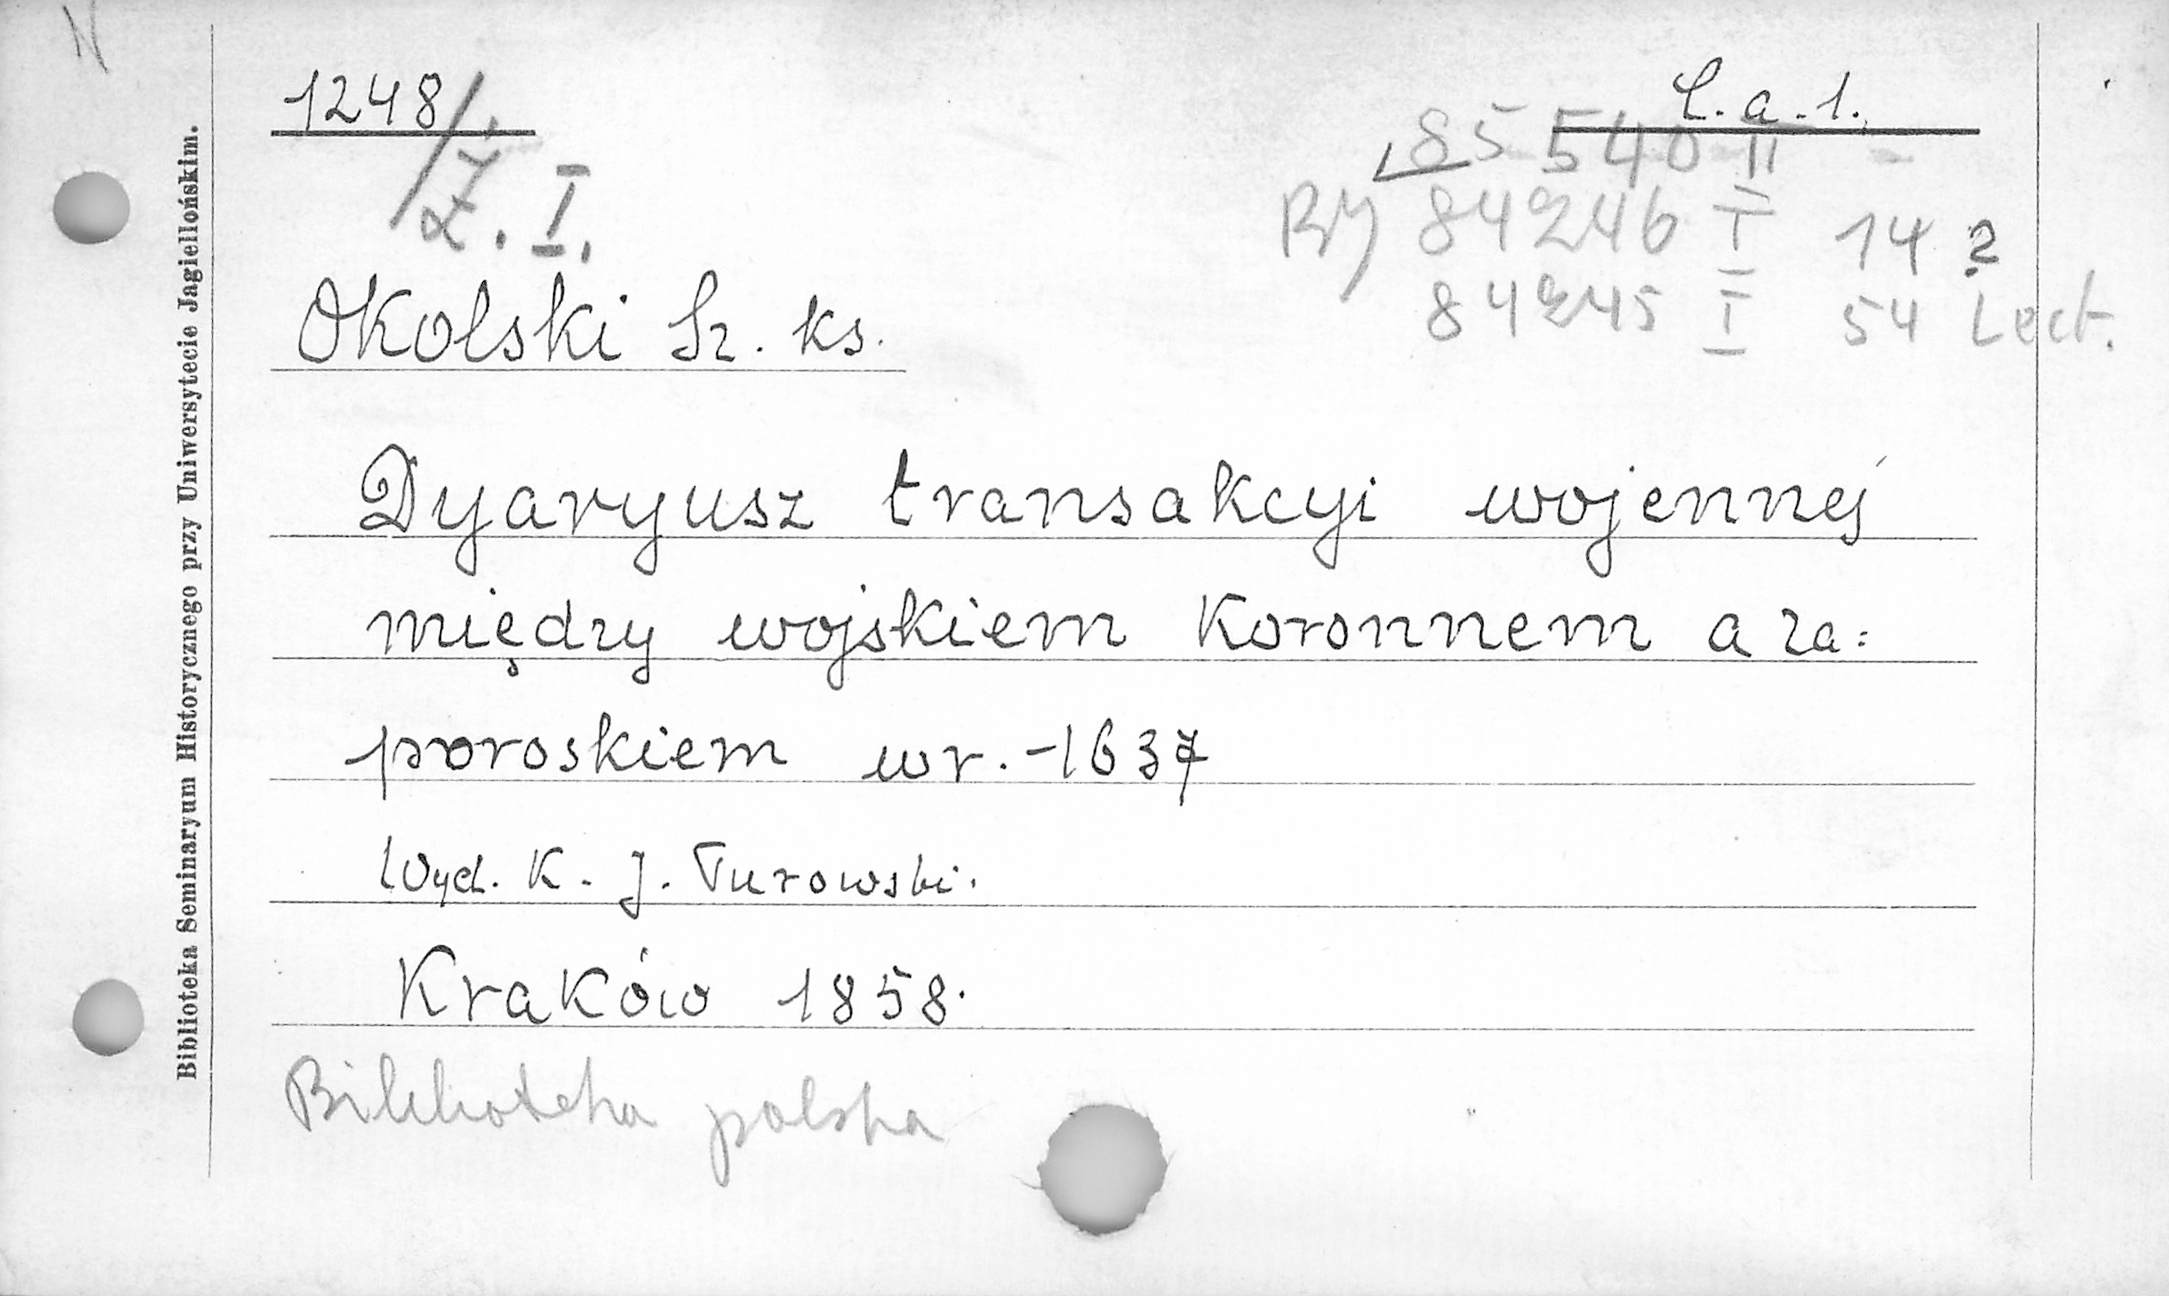 N
1248/Ż. I.
C. a. 1.
85540 II
BJ 84246 I 14 2
84245 I 54 Lect.
Okolski Sz. ks.
Dyaryusz transakcyi wojennéj
między wojskiem Koronnem a za=
poroskiem w r. 1637
Wyd. K. J. Turowski.
Kraków 1858.
Biblioteka polska
Biblioteka Seminaryum Historycznego przy Uniwersytecie Jagiellońskim.